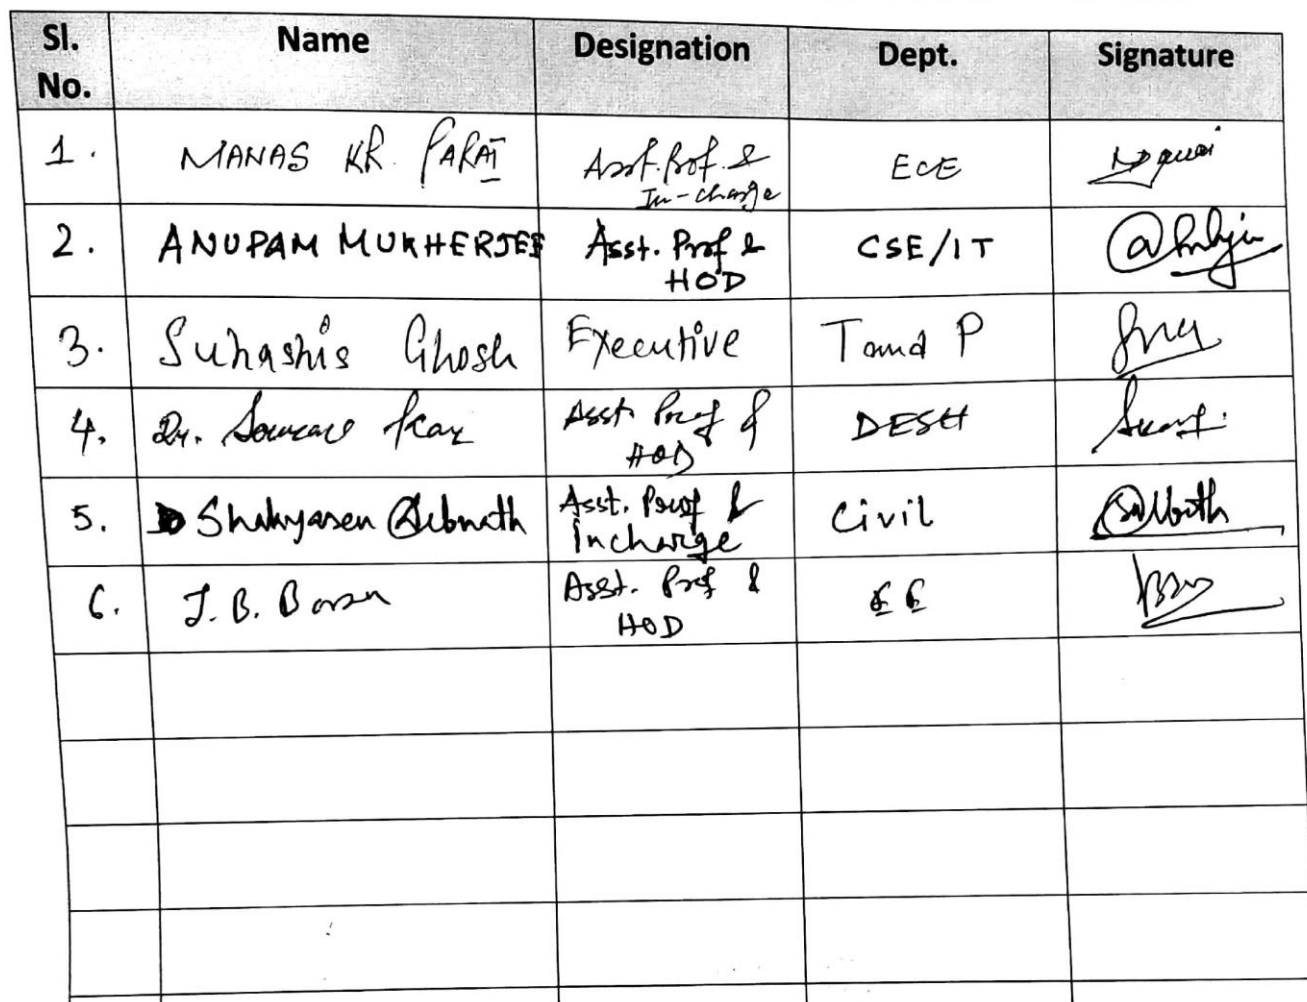 Sl. No. Name Designation Dept. Signature
1. MANAS KR. PARAI Asst. Prof. & In-charge ECE
2. ANUPAM MUKHERJEE Asst. Prof & HOD CSE/IT
3. Suhashis Ghosh Executive T and P
4. Dr. Kar Asst. Prof & HOD DESH
5. Shakyasen Debnath Asst. Prof & Incharge Civil
6. J. B. Asst. Prof & HOD EE